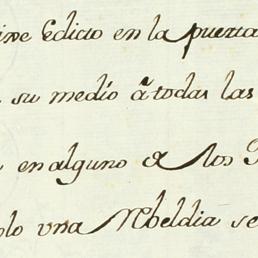 Edicto en la puerta
su medio â todas las
en alguno de los
una Rebeldia se